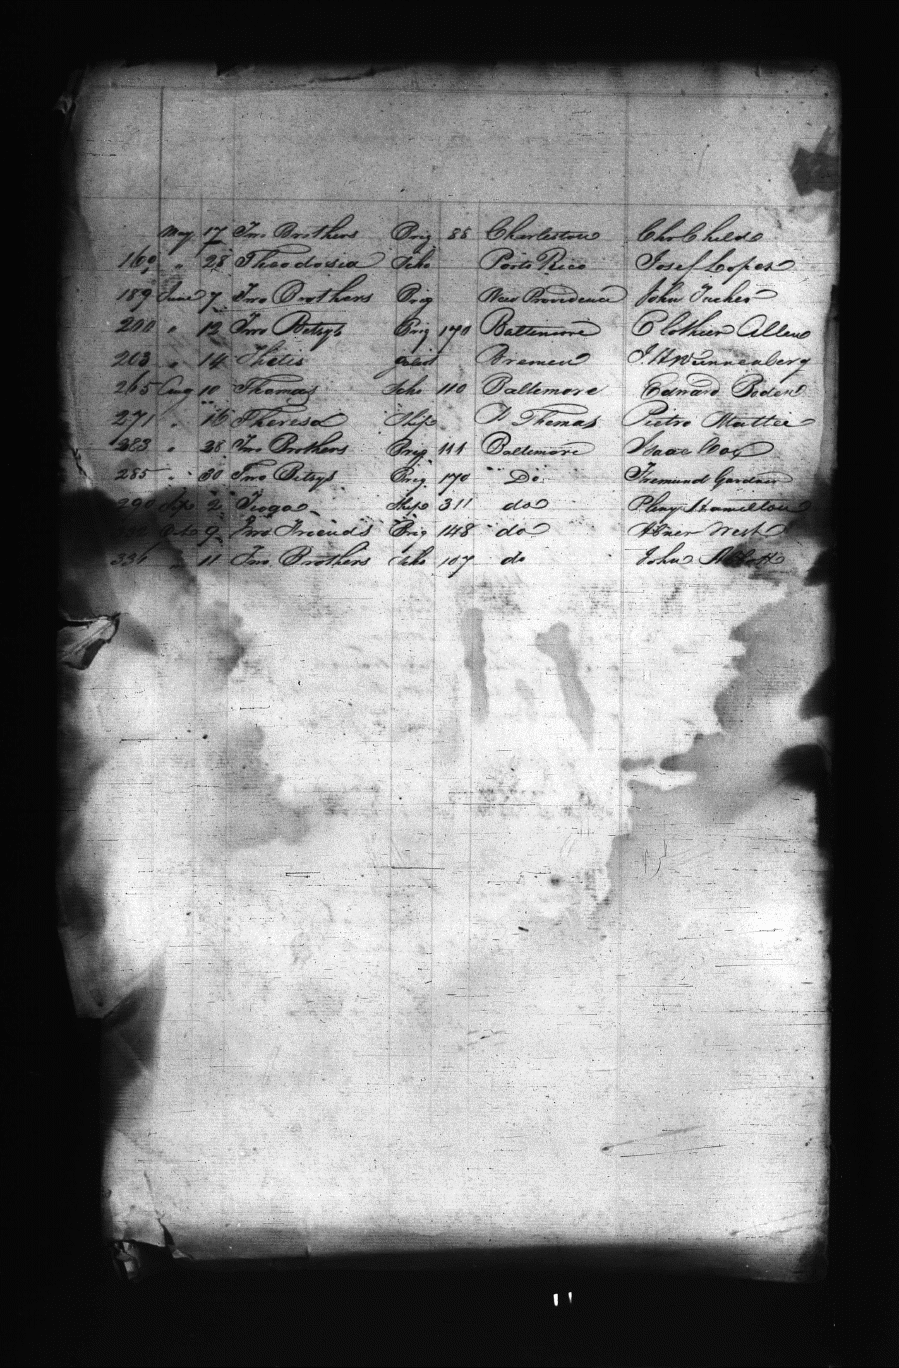 May 17 Two Brothers Brig 88 Charleston Chr Childs
160 " 28 Theodosia Scho Porto Rico Josef Lopez
189 June 7 Two Brothers Brig New Providence John Tucker
200 " 12 Two Betsys Brig 170 Baltimore Clothier Allen
203 " 14 Thetis Bremen
265 Aug 10 Thomas Scho 110 Baltimore Edward Boden
271 " 16 Theresa Ship St Thomas Pietro Mattei
283 " 28 Two Brothers Brig 111 Baltimore Isaac Cox
285 " 30 Two Betsys Brig 170 Do Gardner
290 Sep 2 Tioga Ship 311 do Pliny Hamilton
Oct 9 Two Friends Brig 148 do Abner West
331 " 11 Two Brothers Scho 107 do John